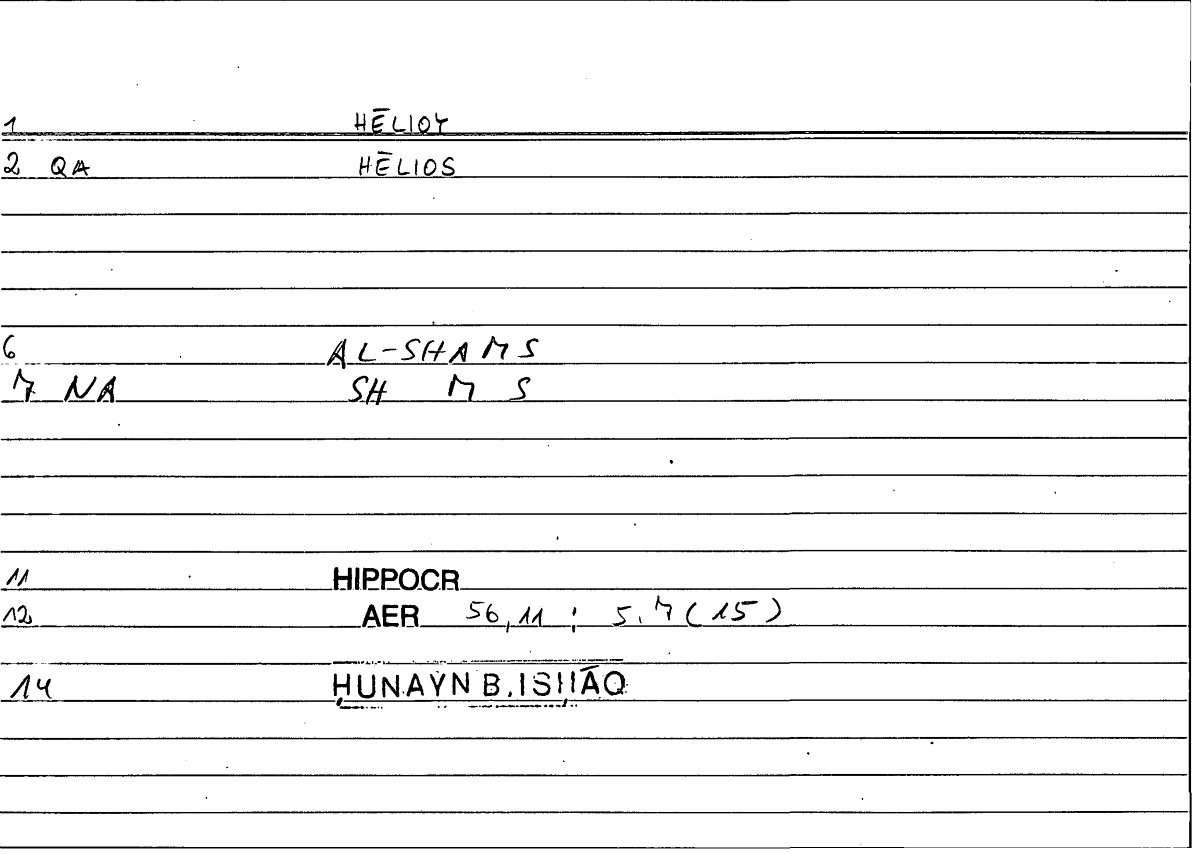 1 HĒLIOY
2 QA HĒLIOS
6 AL-SHAMS
7 NA SH M S
11 HIPPOCR
12 AER 56,11 ; 5.7(15)
14 ḤUNAYN B.ISḤĀQ